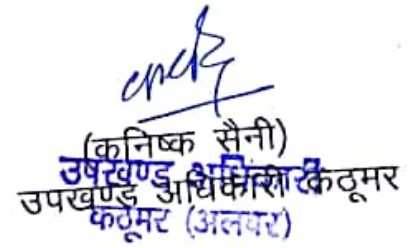 (कनिष्क सैनी)
उपखण्ड अधिकारी
उपखण्ड अधिकारी कठूमर
कठूमर (अलवर)